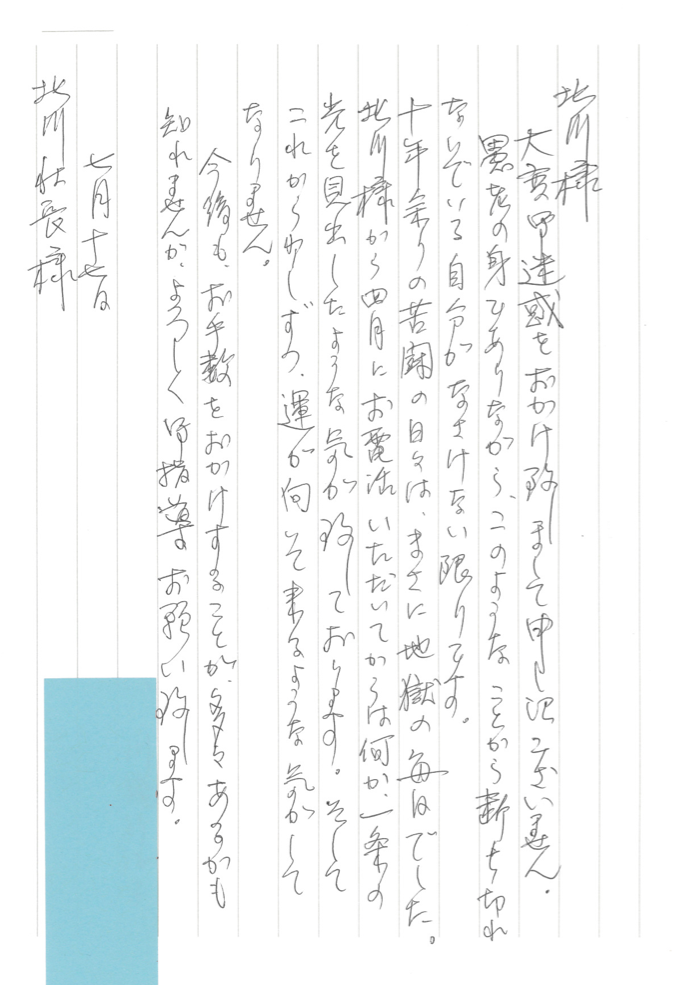 北川様
大変御迷惑をおかけ致しまして申し訳ございません。
愚老の身でありながら、このようなことから断ち切れ
ないでいる自分がなさけない限りです。
十年余りの苦闘の日々は、まさに地獄の毎日でした。
北川様から四月にお電話いただいてからは何か、一条の
光を見出したような気が致しております。そして
これから少しずつ、運が向いて来るような気がして
なりません。
今後も、お手数をおかけすることが、多々あるかも
知れませんが、よろしく御指導お願い致します。
七月十七日
北川社長様